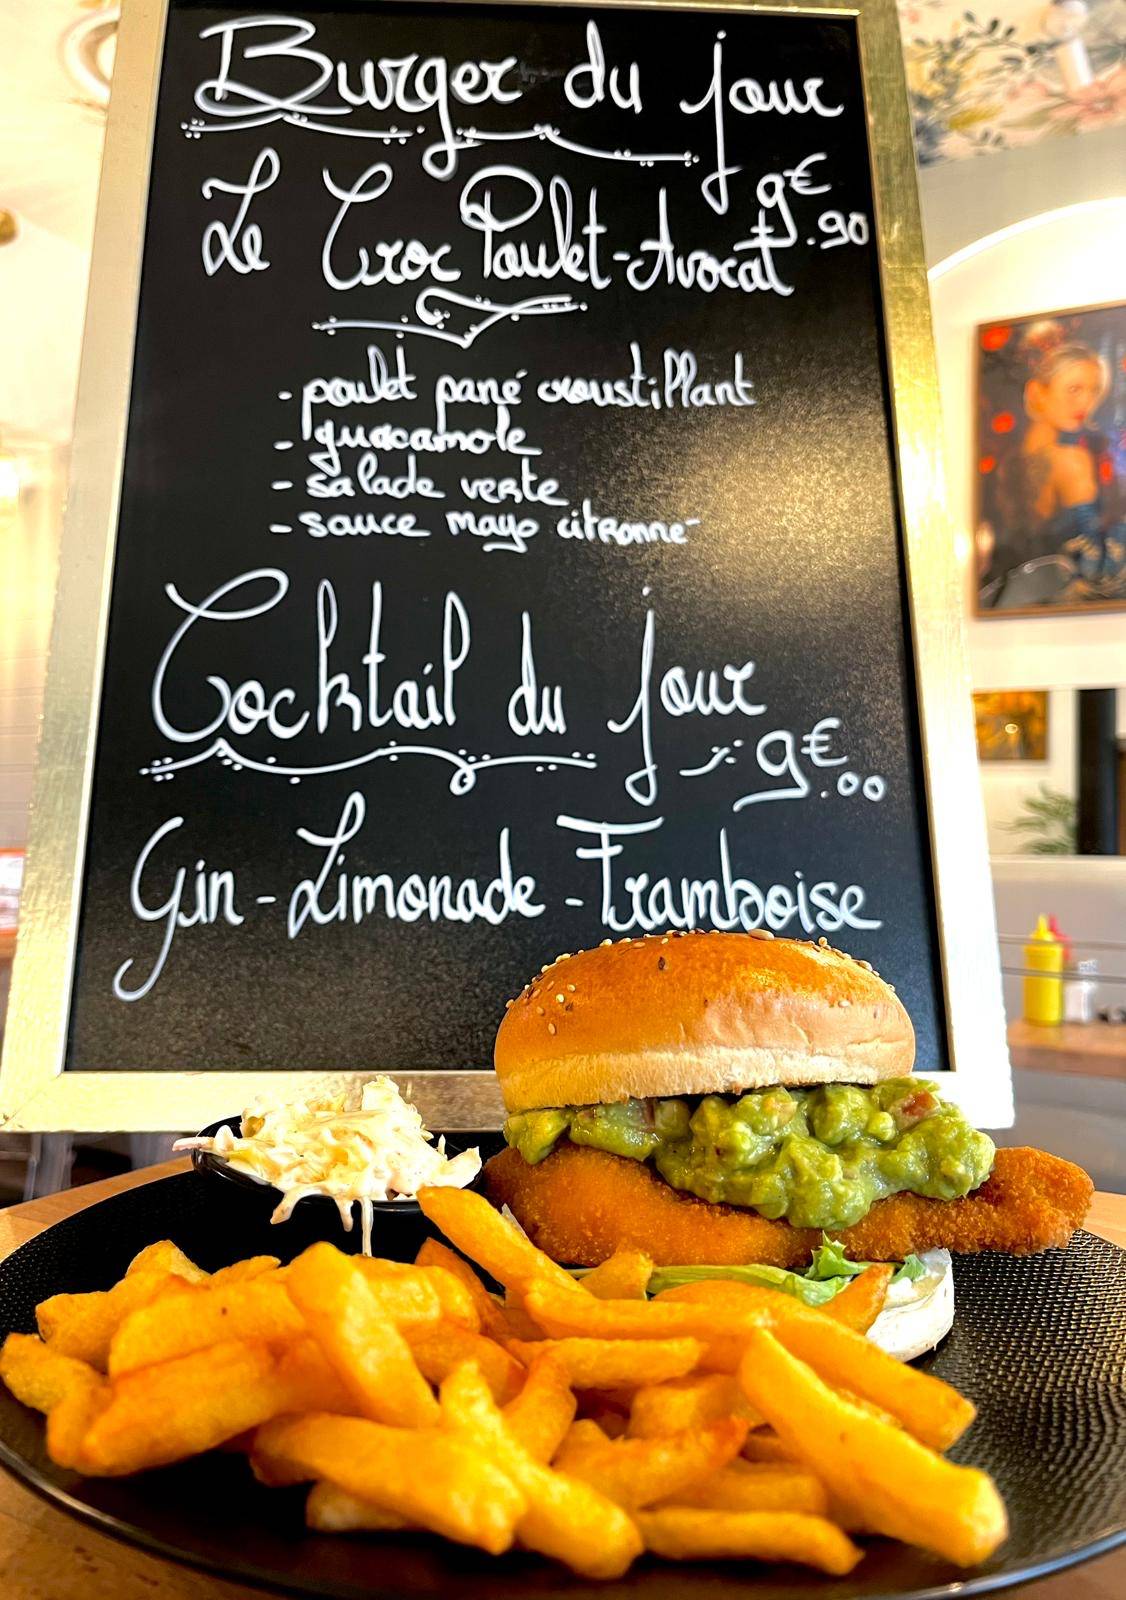 Burger du jour
Le Croc Poulet-Avocat 9€.90
- poulet pané croustillant
- guacamole
- salade verte
- sauce mayo citronné
Cocktail du jour
9€.00
Gin - Limonade - Framboise